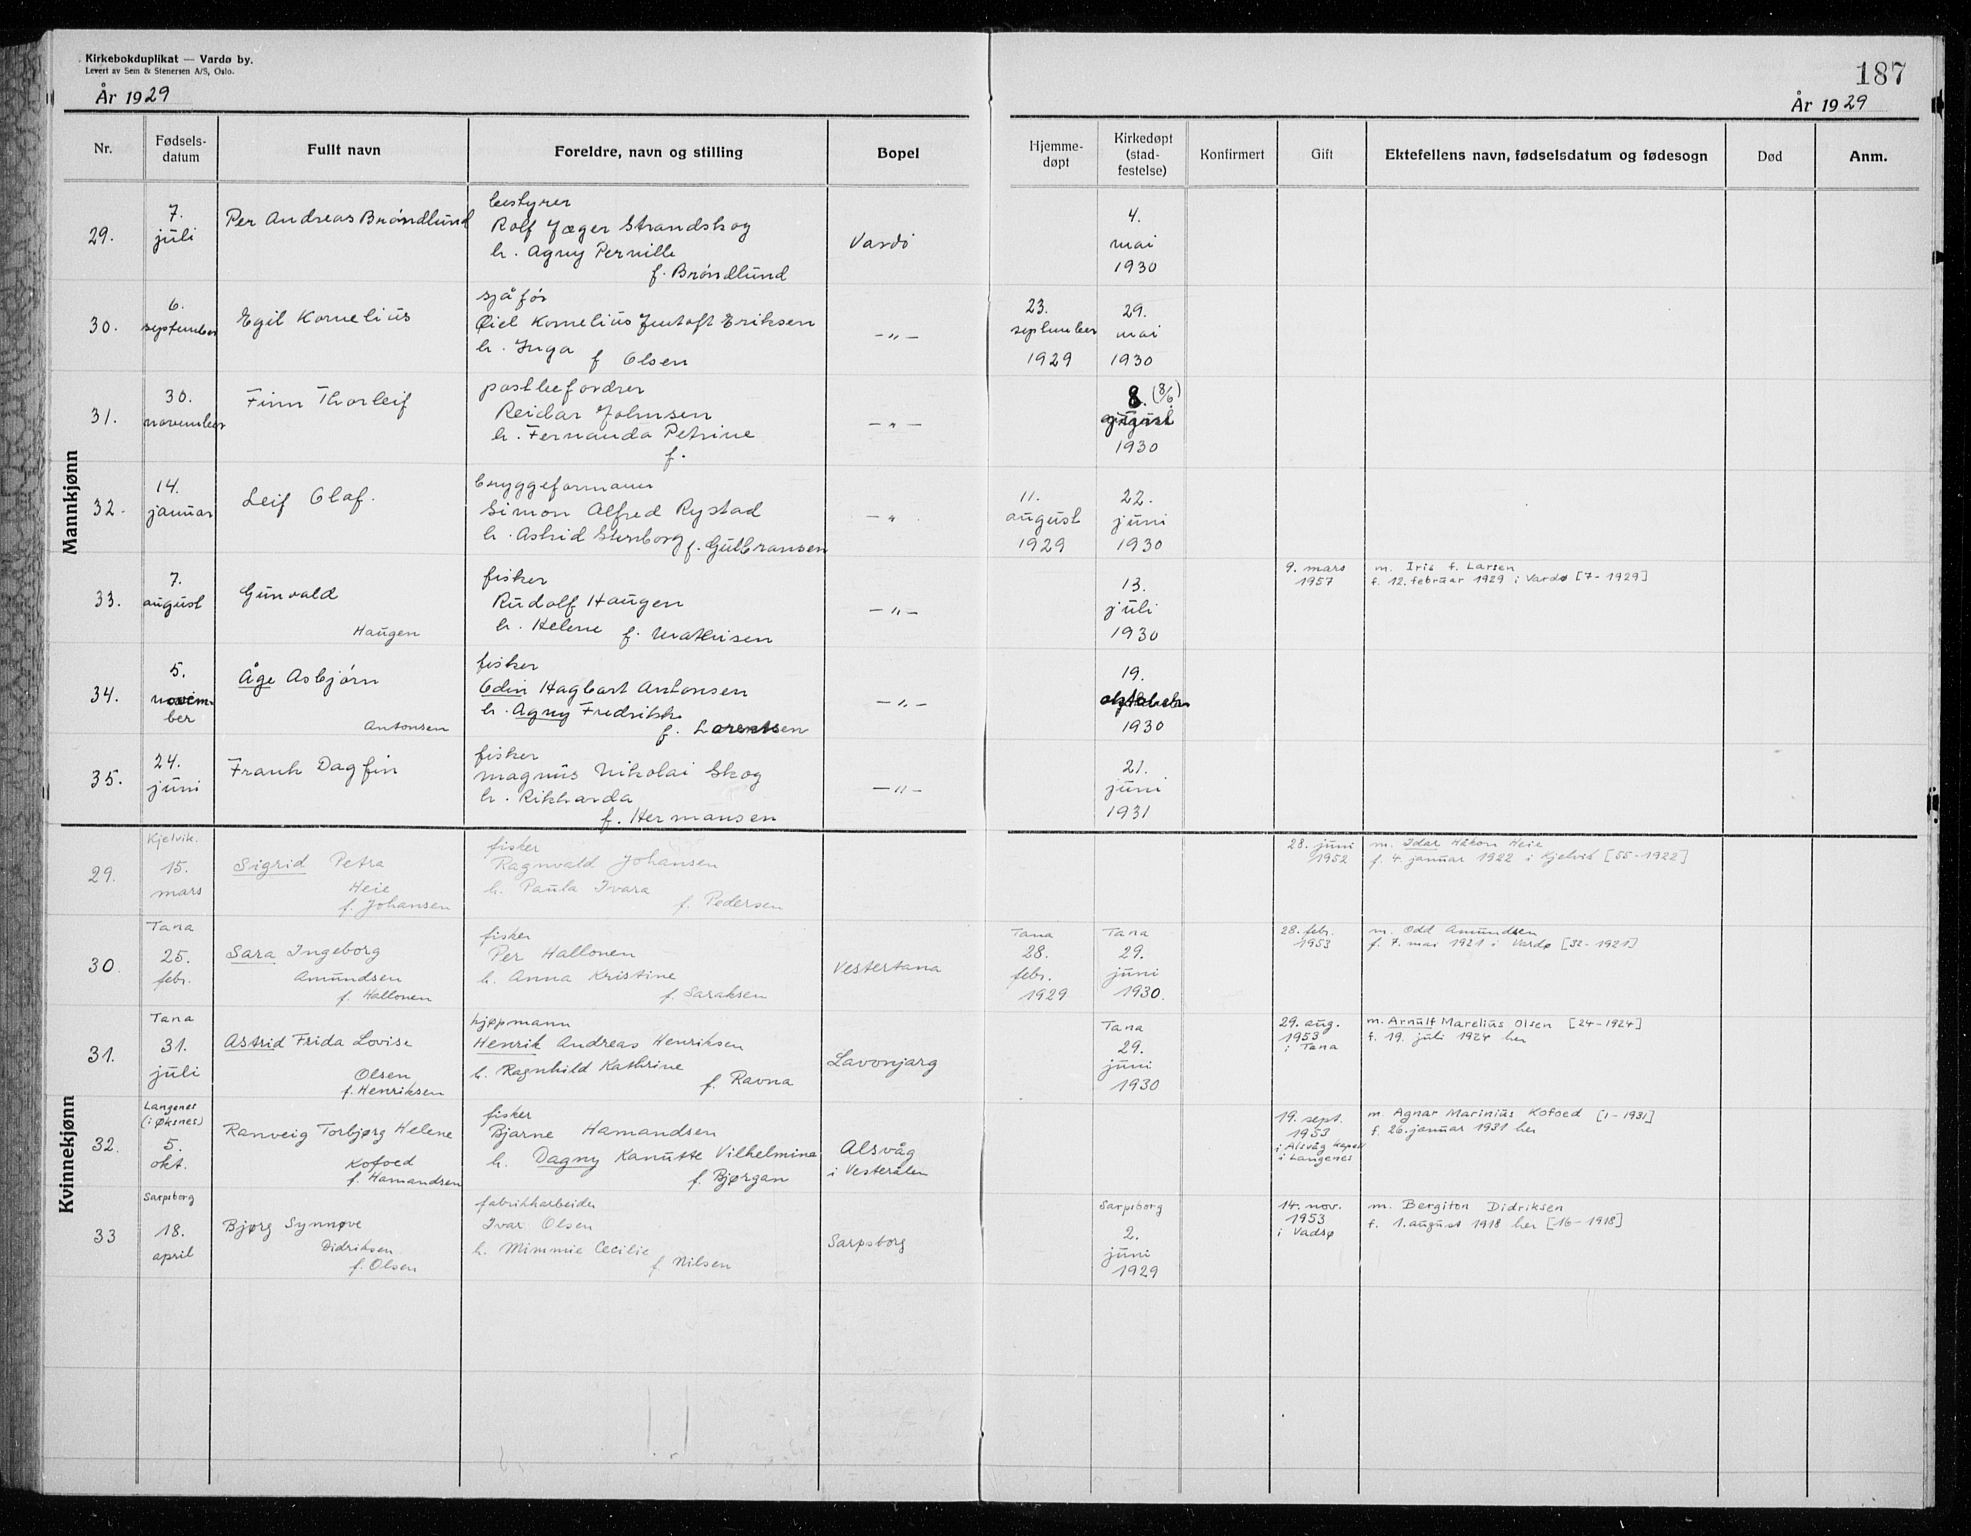 Kirkebokduplikat — Vardø by.
Levert av Sem & Stenersen A/S, Oslo.
187
År 1929
År 1929
Nr.
Fødsels-
datum
Fullt navn
Foreldre, navn og stilling
Bopel
Hjemme-
døpt
Kirkedøpt
(stad-
festelse)
Konfirmert
Gift
Ektefellens navn, fødselsdatum og fødesogn
Død
Anm.
Mannkjønn
29.
7.
juli
Per Andreas Brøndlund
bestyrer
Rolf Jæger Strandskog
h. Agny Pernille
f. Brøndlund
Vardø
4.
mai
1930
30.
6.
september
Egil Kornelius
sjåfør
Kornelius Eriksen
h. Inga f Olsen
— „ —
23.
september
1929
29.
mai
1930
31.
30.
november
Finn Thorleif
postbefordrer
Reidar Johnsen
h. Fernanda Petrine
f.
— „ —
8. (8/6)
1930
32.
14.
januar
Leif Olaf.
bryggeformann
Simon Alfred Rystad
h. Astrid Stenborg f. Gulbransen
— „
11.
august
1929
22.
juni
1930
33.
7.
august
Gunvald
Haugen
fisker
Rudolf Haugen
h. Helene f. Mathisen
— „ —
13.
juli
1930
9. mars
1957
m. Iris f. Larsen
f. 12. februar 1929 i Vardø [7-1929]
34.
5.
novem-
ber
Åge Asbjørn
Antonsen
fisker
Edin Hagbart Antonsen
h. Agny Fredrikke
f. Lorentsen
— „ —
19.
1930
35.
24.
juni
Frank Dagfin
fisker
Magnus Nikolai Skog
h. Rikharda
f. Hermansen
— „ —
21.
juni
1931
Kvinnekjønn
29.
Kjelvik.
15.
mars
Sigrid Petra
Heie
f. Johansen
fisker
Ragnvald Johansen
h. Paula Ivara
f. Pedersen
28. juni
1952
m. Idar Håkon Heie
f. 4. januar 1922 i Kjelvik [55-1922]
30.
Tana
25.
febr.
Sara Ingeborg
Amundsen
f. Hallonen
fisker
Per Hallonen
h. Anna Kristine
f. Saraksen
Vestertana
Tana
28.
febr.
1929
Tana
29.
juni
1930.
28. febr.
1953
m. Odd Amundsen
f. 7. mai 1921 i Vardø [32-1921]
31.
Tana
31.
juli
Astrid Frida Lovise
Olsen
f. Henriksen
kjøpmann
Henrik Andreas Henriksen
h. Ragnhild Kathrine
f. Ravna
Lavonjarg
Tana
29.
juni
1930
29. aug.
1953
i Tana
m. Arnulf Marelius Olsen [24-1924]
f. 19. juli 1924 her
32.
Langenes
(i Øksnes)
5.
okt.
Ranveig Torbjørg Helene
Kofoed
f. Hamandsen
fisker
Bjarne Hamandsen
h. Dagny Kanutte Vilhelmina
f. Bjørgan
Alsvåg
i Vesterålen
19. sept.
1953
i Alsvåg kapell
i Langenes
m. Agnar Marinius Kofoed [1-1931]
f. 26. januar 1931 her
33
Sarpsborg
18.
april
Bjørg Synnøve
Didriksen
f. Olsen
fabrikkarbeider
Ivar Olsen
h. Mimmie Cecilie
f. Nilsen
Sarpsborg
Sarpsborg
2.
juni
1929
14. nov.
1953
i Vadsø
m. Bergiton Didriksen
f. 1. august 1918 her [16-1918]